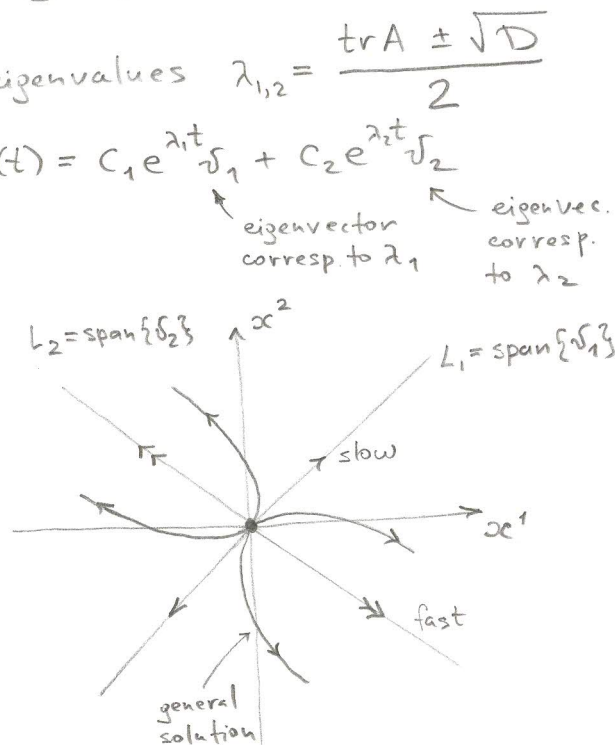 eigenvalues λ₁,₂ = (tr A ± √D) / 2
(t) = C₁ e^{λ₁t} v₁ + C₂ e^{λ₂t} v₂
eigenvector
corresp. to λ₁
eigenvec.
corresp.
to λ₂
L₂ = span{v₂}
x²
L₁ = span{v₁}
slow
x¹
fast
general
solution